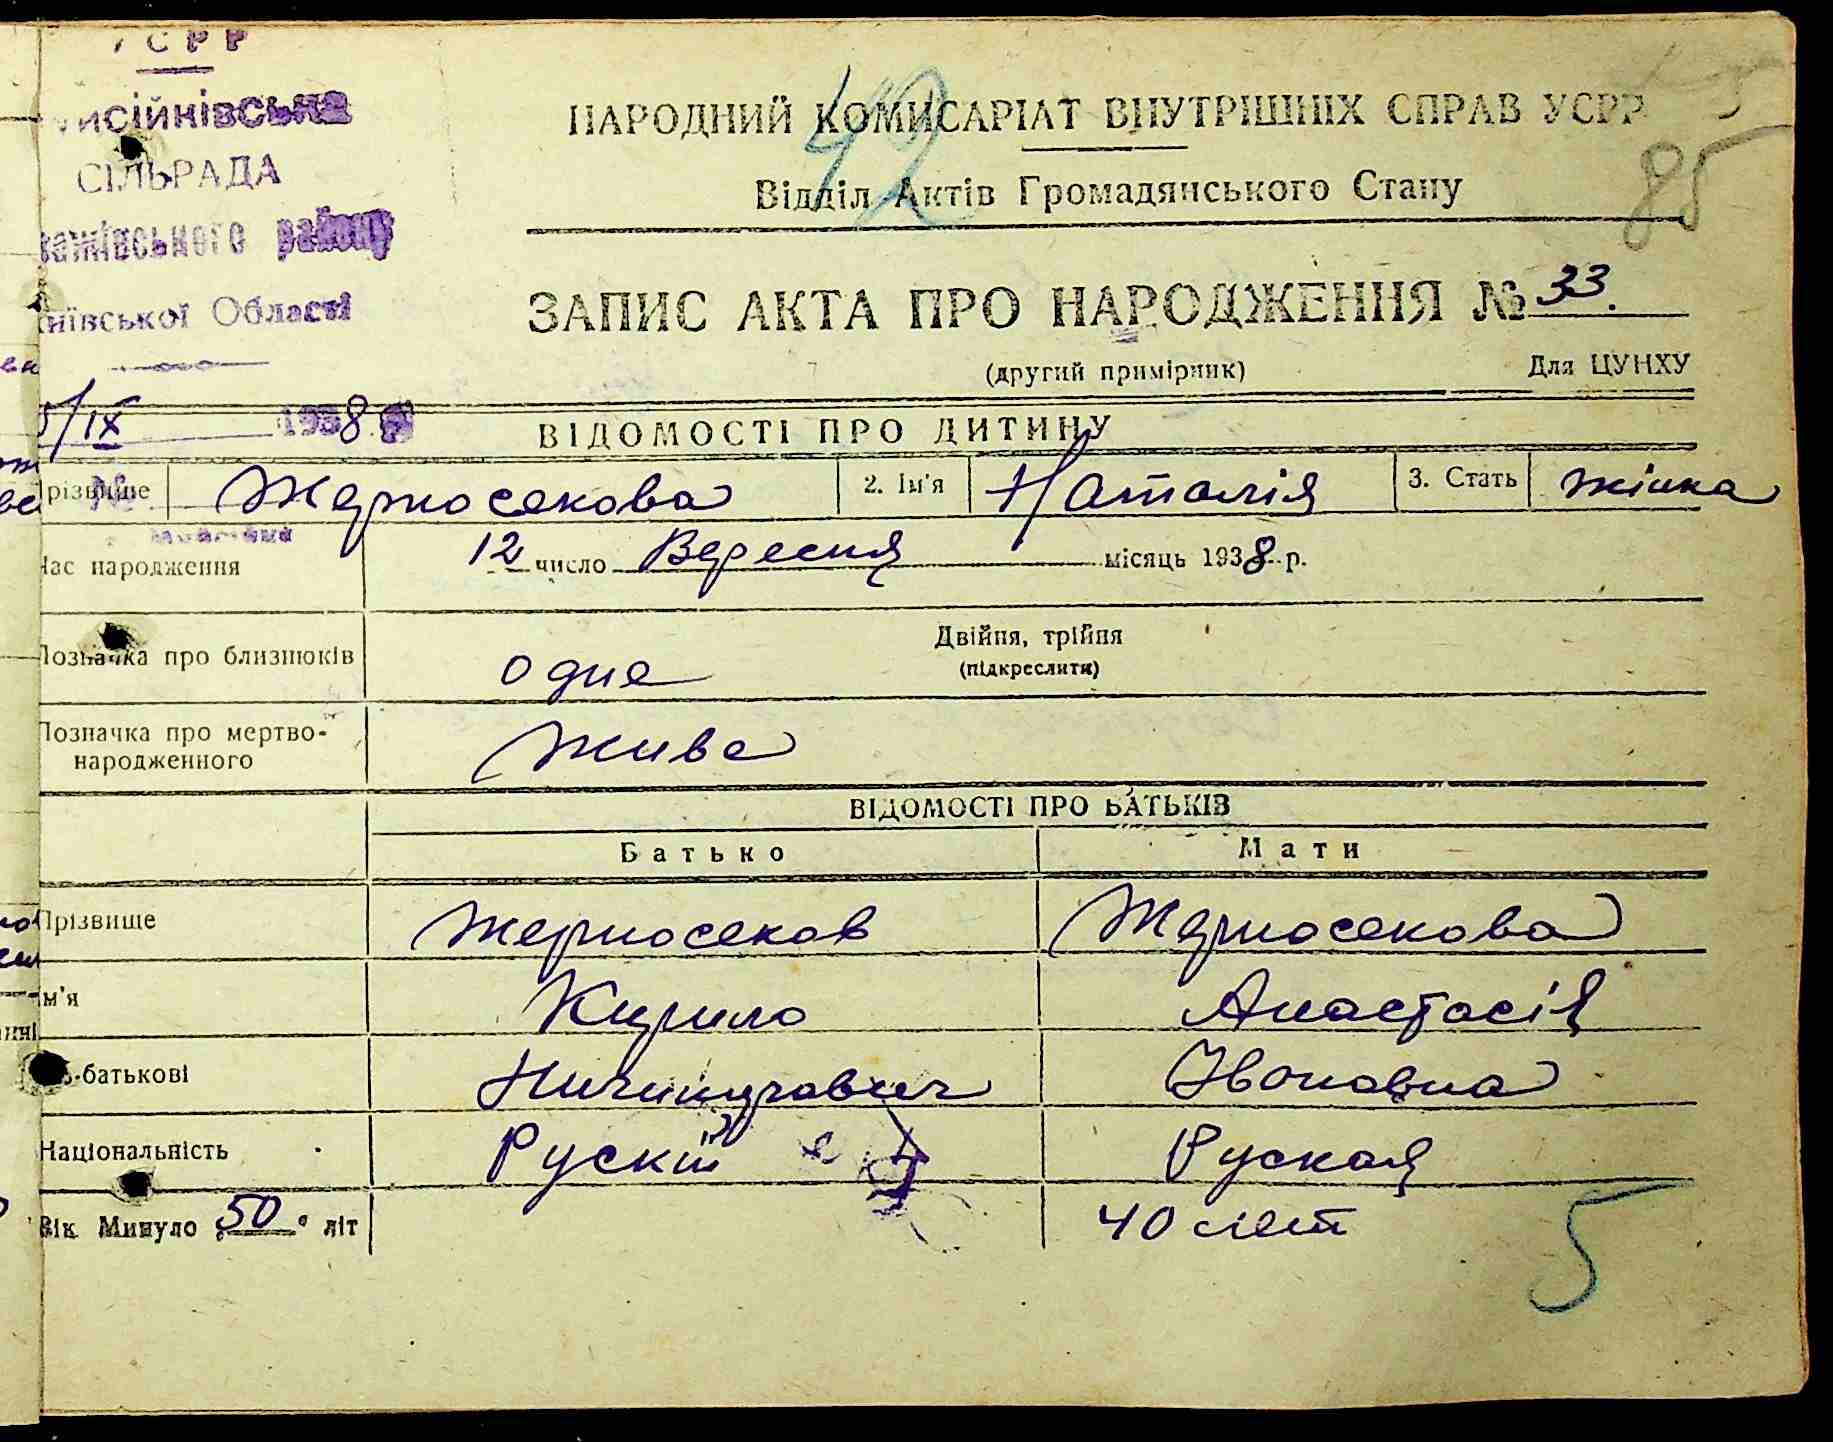 УСРР
СІЛЬРАДА
району
Області
НАРОДНИЙ КОМИСАРІАТ ВНУТРІШНІХ СПРАВ УСРР
42
85
Відділ Актів Громадянського Стану
ЗАПИС АКТА ПРО НАРОДЖЕННЯ № 33.
(другий примірник) Для ЦУНХУ
/IX 1938 р
ВІДОМОСТІ ПРО ДИТИНУ
різвище Жерносекова 2. Ім'я Наталія 3. Стать жінка
Час народження 12 число Вересня місяць 1938 р.
Позначка про близнюків одне Двійня, трійня
(підкреслити)
Позначка про мертво-
народженного живе
ВІДОМОСТІ ПРО БАТЬКІВ
Батько Мати
Прізвище Жерносеков Жерносекова
м'я Кирило Анастасія
-батькові Ивановна
Національність Рускій Руская
Вік Минуло 50 літ 40 лет
5